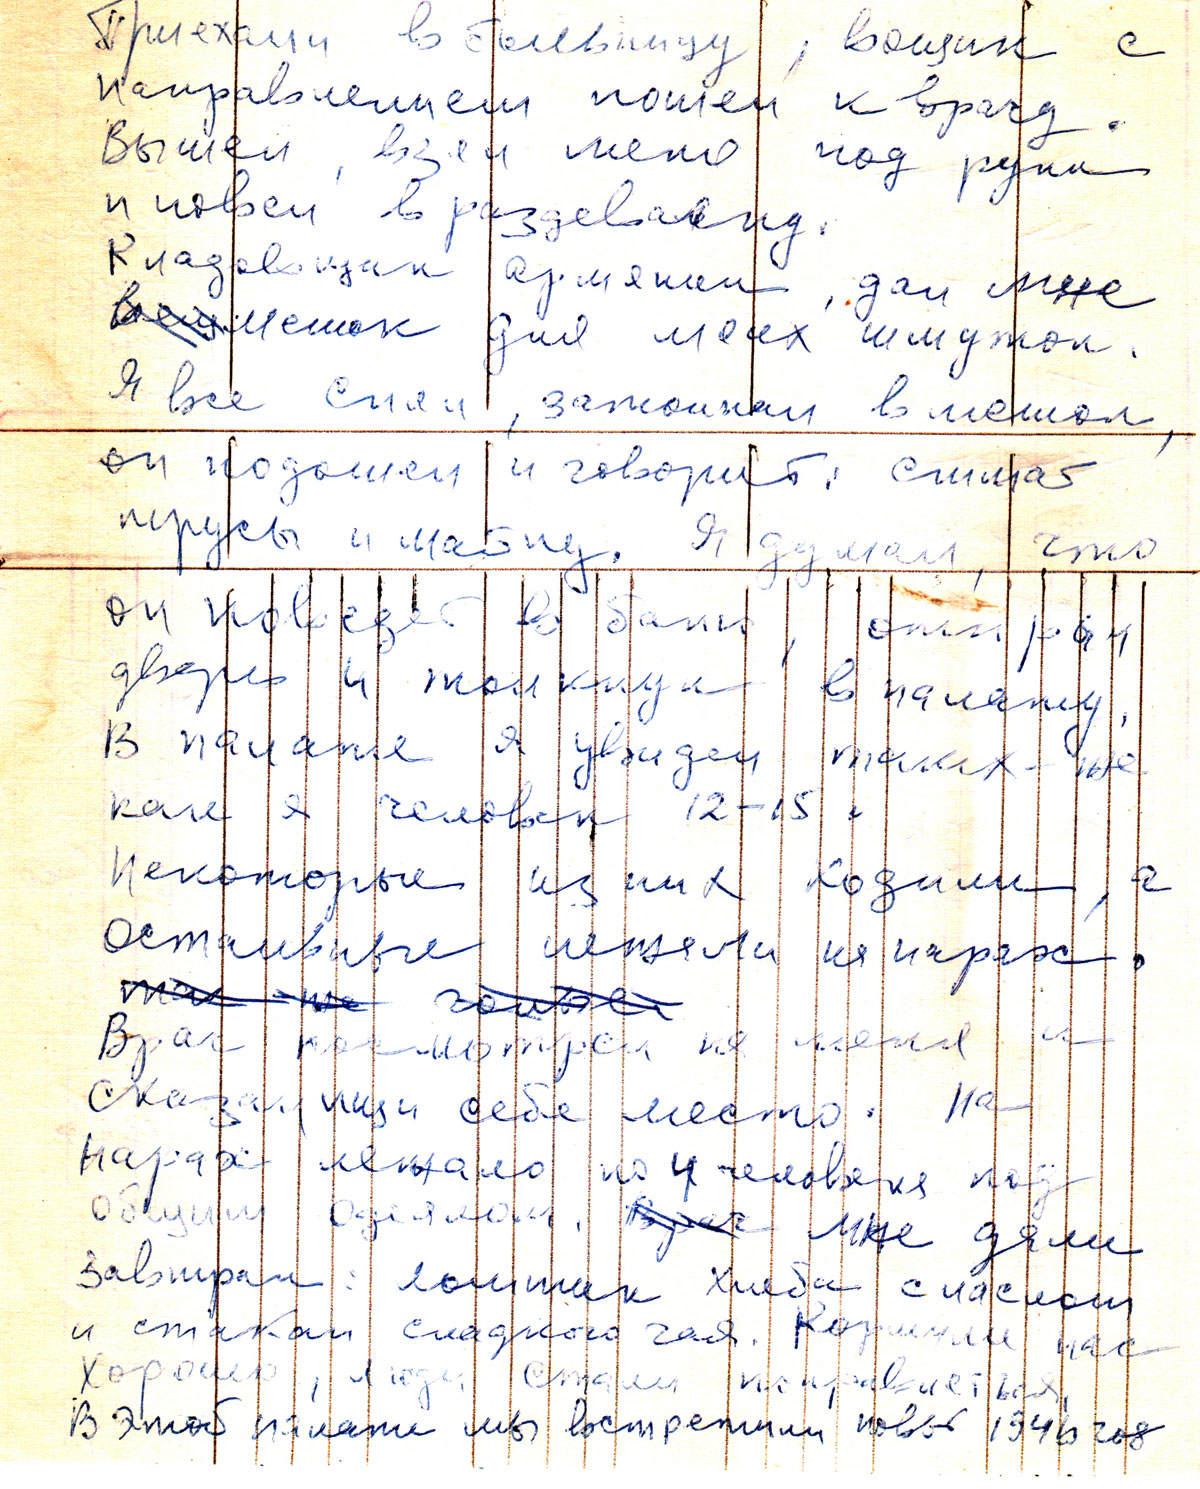 Приехали в больницу, возщик с
направлением пошел к врачу.
Вышел, взял меня под руки
и повел в раздевалку.
Кладовщик армянин, дал мне
мешок для моих шмуток.
Я все снял, затолкал в мешок,
он подошел и говорит: снимай
трусы и майку. Я думал, что
он поведет в баню, открыл
дверь и толкнул в палату.
В палате я увидел таких-же
как я человек 12-15.
Некоторые из них ходили, а
остальные лежали на нарах.
так-же голые
Врач посмотрел на меня и
сказал ищи себе место. На
нарах лежало по 4 человека под
общим одеялом. Врач мне дали
Завтрак: ломтик хлеба с маслом
и стакан сладкого чая. Кормили нас
хорошо, люди стали поправляться,
В этой палате мы встретили новый 1946 год